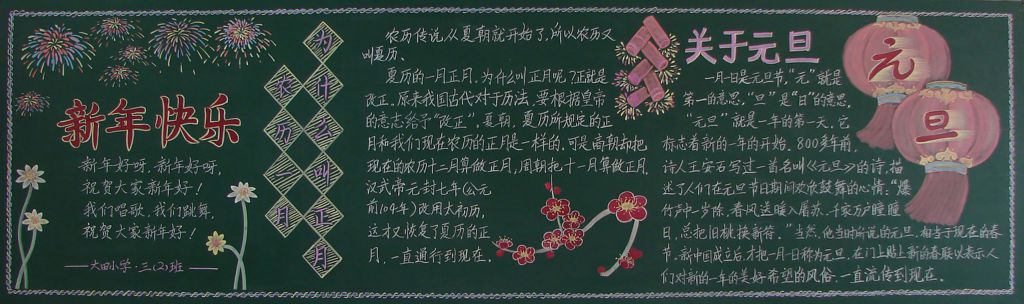 新年快乐
新年好呀，新年好呀，
祝贺大家新年好！
我们唱歌，我们跳舞，
祝贺大家新年好！
——大田小学·三(2)班——
为什么叫正月
农历一月
农历传说从夏朝就开始了，所以农历又
叫夏历。
夏历的一月正月，为什么叫正月呢？正就是
改正。原来我国古代对于历法，要根据皇帝
的意志给予“改正”，夏朝，夏历所规定的正
月和我们现在农历的正月是一样的，可是商朝却把
现在的农历十二月算做正月，周朝把十一月算做正月，
汉武帝元封七年（公元
前104年）改用太初历，
这才又恢复了夏历的正
月，一直通行到现在。
关于元旦
一月一日是元旦节，“元”就是
第一的意思，“旦”是“日”的意思，
“元旦”就是一年的第一天，它
标志着新的一年的开始。800多年前，
诗人王安石写过一首名叫《元旦》的诗，描
述了人们在元旦节日期间欢欣鼓舞的心情。“爆
竹声中一岁除，春风送暖入屠苏，千家万户瞳瞳
日，总把旧桃换新符。”当然，他当时所说的元旦，相当于现在的春
节，新中国成立后，才把一月一日称为元旦，在门上贴上新的春联以表示人
们对新的一年的美好希望的风俗，一直流传到现在。
元旦